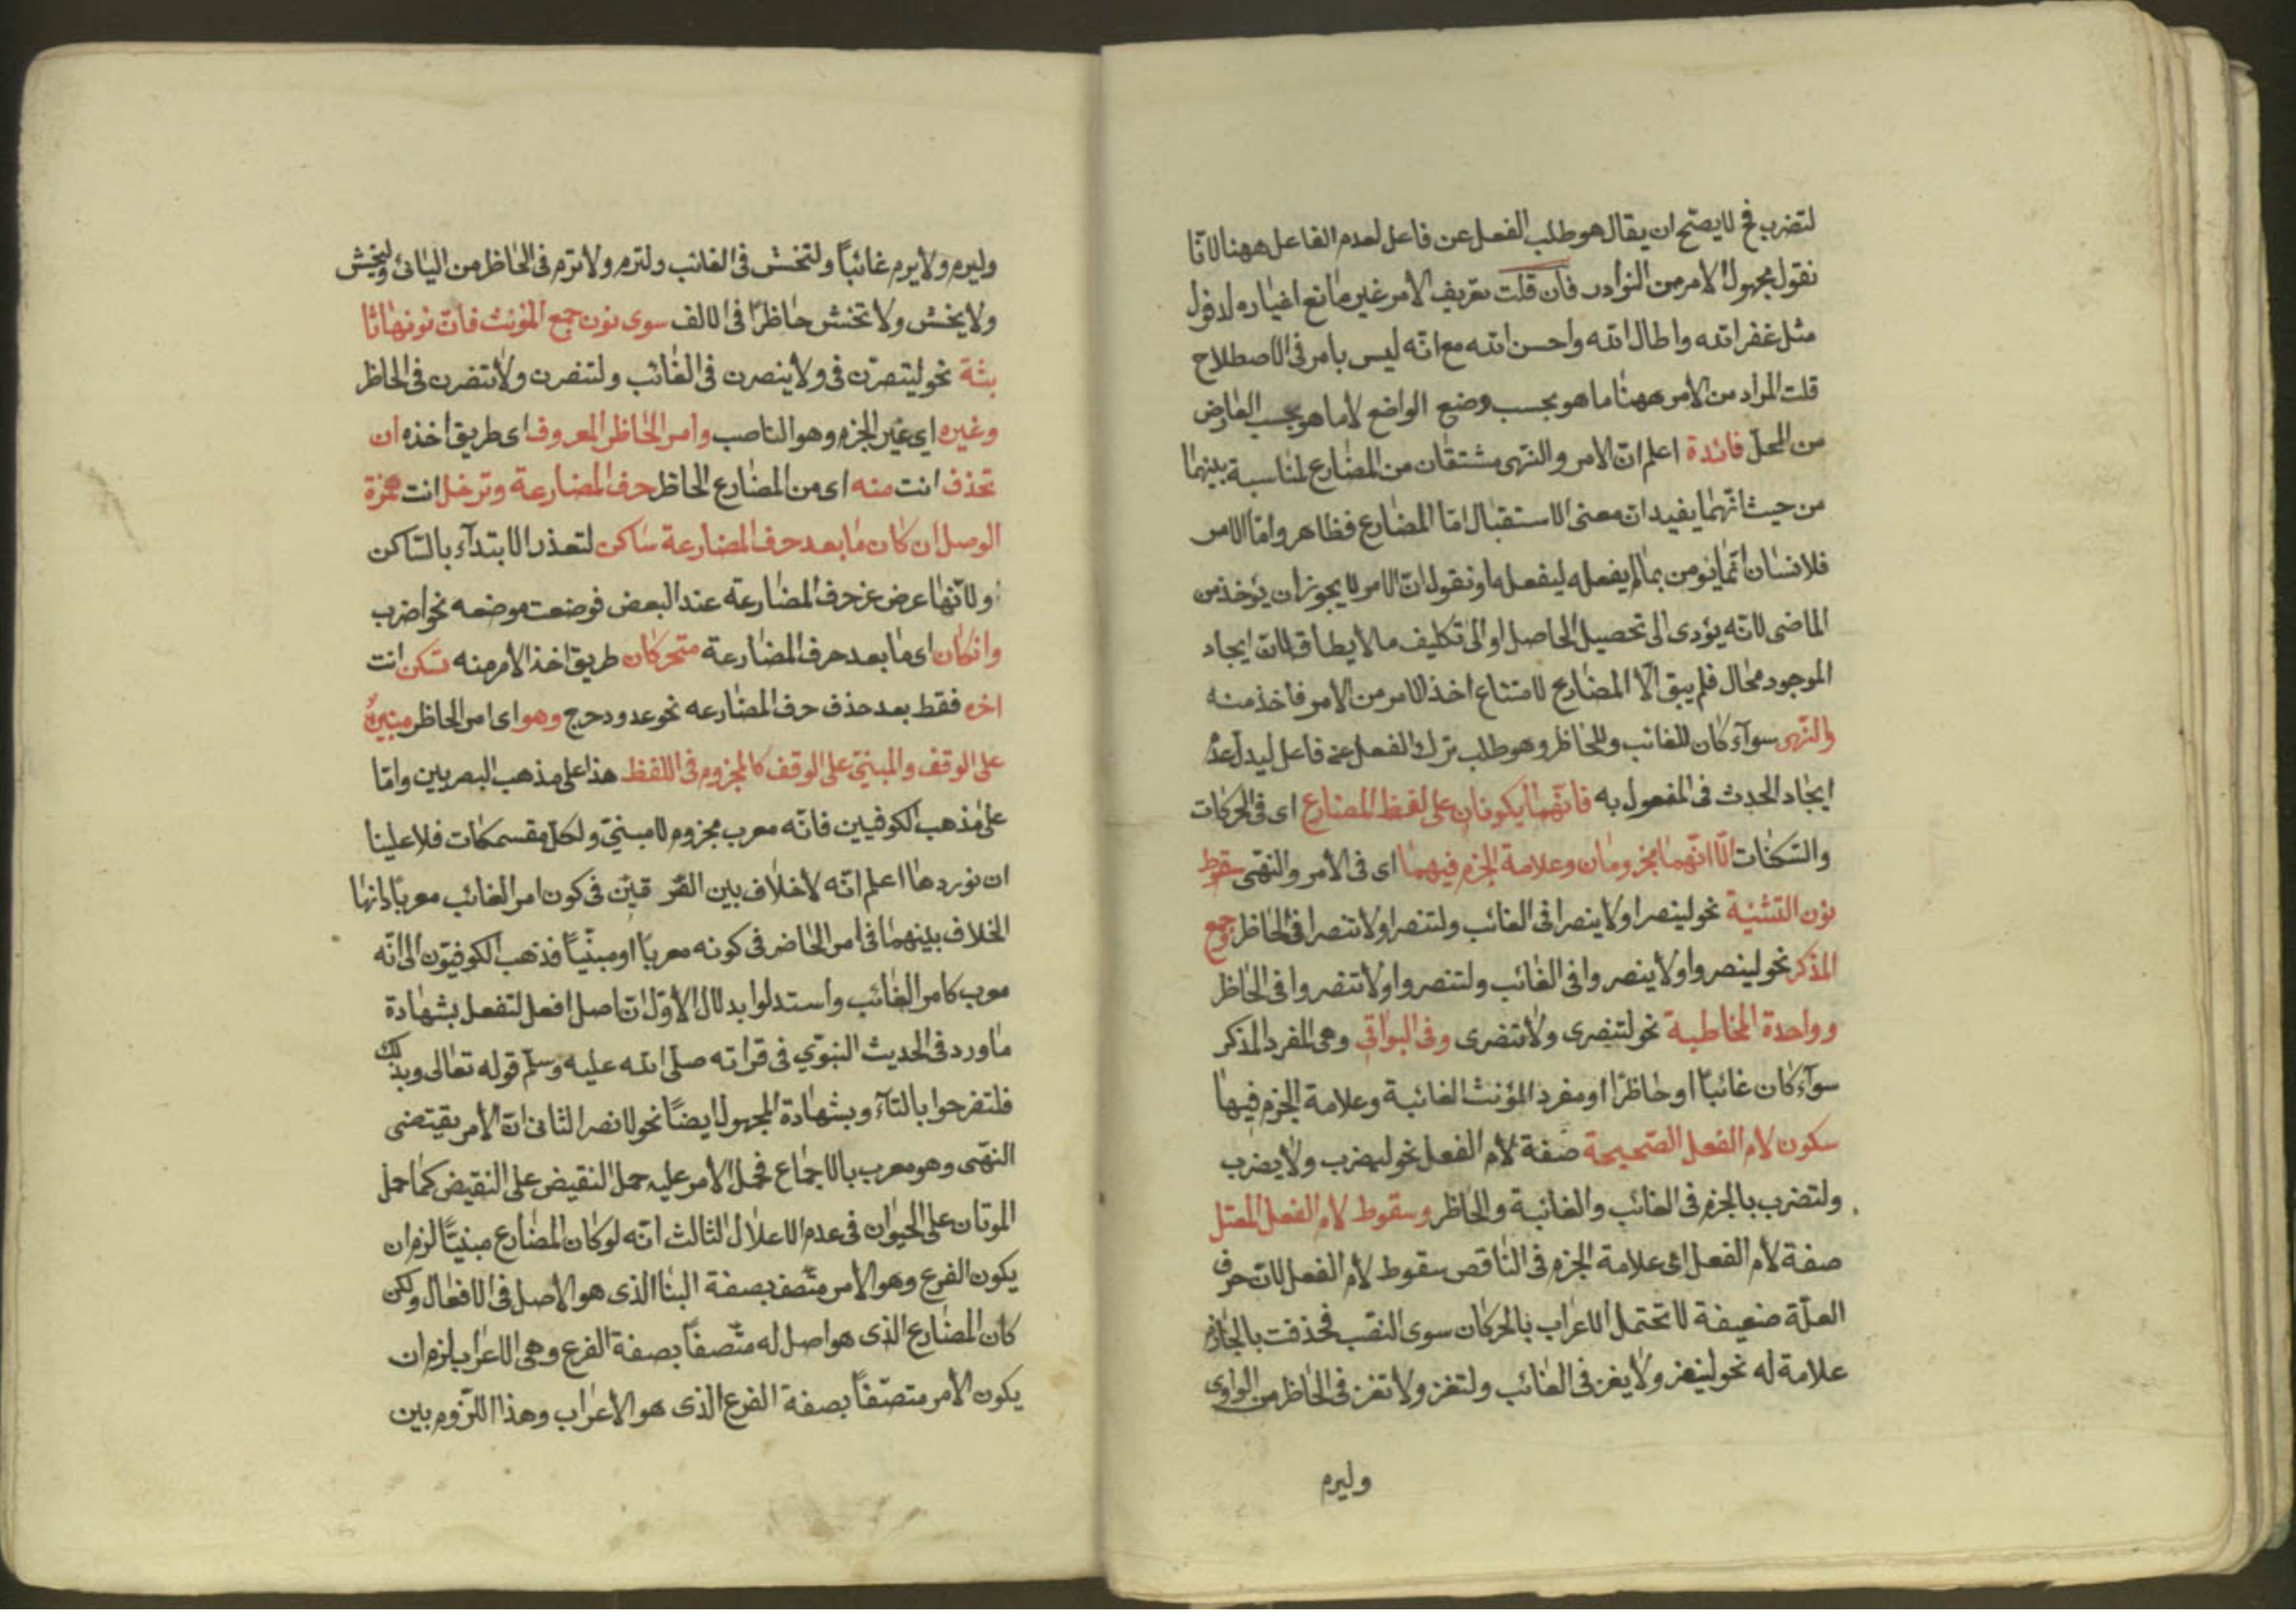 لتضرب فح لا يصتح ان يقال هو طلب الفعل عن فاعل لعدم الفاعل ههنا لانّا
نقول مجهول الامر من النوادر فان قلت تعريف الامر غير مانع اغياره لدخول
مثل غفر الله واطال الله واحسن الله مع انّه ليس بامر فى الاصطلاح
قلت المراد من الامر ههنا ما هو بحسب وضع الواضع لا ما هو بحسب العارض
من المحلّ فائدة اعلم انّ الامر والنهى مشتقان من المضارع لمناسبة بينهما
من حيث انّهما يفيدان معنى الاستقبال امّا المضارع فظاهر وامّا الامر
فلانسان انّما يؤمن بما لم يفعله ليفعله او نقول انّ الامر لا يجوز ان يؤخذ من
الماضى لانّه يؤدى الى تحصيل الحاصل او الى تكليف ما لا يطاق لانّ ايجاد
الموجود محال فلم يبق الّا المضارع لامتناع اخذ الامر من الامر فاخذ منه
والنّهى سوآء كان للغائب وللحاظر وهو طلب ترك الفعل عن فاعل ليدل عدم
ايجاد الحدث فى المفعول به فانّهما يكونان على لفظ المضارع اى فى الحركات
والسّكنات الّا انّهما مجزومان وعلامة الجزم فيهما اى فى الأمر والنهى سقوط
نون التثنية نحو لينصرا ولا ينصرا فى الغائب ولتنصرا ولا تنصرا فى الحاظر وجمع
المذكر نحو لينصروا ولا ينصروا فى الغائب ولتنصروا ولا تنصروا فى الحاظر
وواحدة المخاطبة نحو لتنصرى ولا تنصرى وفى البواقى وهى المفرد المذكر
سوآء كان غائبًا او حاظرًا او مفرد المؤنث الغائبة وعلامة الجزم فيها
سكون لام الفعل الصّحيحة صفة لام الفعل نحو ليضرب ولا يضرب
ولتضرب بالجزم فى الغائب والغائبة والحاظر وسقوط لام الفعل المعتل
صفة لام الفعل اى علامة الجزم فى النّاقص سقوط لام الفعل لانّ حرف
العلّة ضعيفة لا تحتمل الاعراب بالحركان سوى النصب فحذفت بالجازم
علامة له نحو ليغز ولا يغز فى الغائب ولتغز ولا تغز فى الحاظر من الواوى
وليرم
وليرم ولا يرم غائبًا ولتخش فى الغائب ولترم ولا ترم فى الحاظر من اليائى وليخش
ولا يخش ولا تخش حاظرًا فى الالف سوى نون جمع المؤنث فانّ نونها ثا
بتة نحو لينصرن فى ولا ينصرن فى الغائب ولتنصرن ولا تنصرن فى الحاظر
وغيره اى غير الجزم وهو الناصب وامر الحاظر المعروف اى طريق اخذه ان
تحذف انت منه اى من المضارع الحاظر حرف المضارعة وتدخل انت همزة
الوصل ان كان ما بعد حرف المضارعة ساكن لتعذر الابتدآء بالسّاكن
ولانّها عرض عن حرف المضارعة عند البعض فوضعت موضعه نحو اضرب
وانكان اى ما بعد حرف المضارعة متحركان طريق اخذ الأمر منه تسكن انت
اخره فقط بعد حذف حرف المضارعه نحو عد ودحرج وهو اى امر الحاظر مبنىّ
على الوقف والمبنىّ على الوقف كالمجزوم فى اللفظ هذا على مذهب البصريين وامّا
على مذهب الكوفيين فانّه معرب مجزوم لا مبنىّ ولكل مقسمكات فلا علينا
ان نوردها اعلم انّه لا خلاف بين الفر قين فى كون امر الغائب معربًا وانها
الخلاف بينهما فى امر الحاضر فى كونه معربًا او مبنيًّا فذهب الكوفيّون الى انّه
معرب كامر الغائب واستدلوا بدلال الأوّل انّ اصل افعل لتفعل بشهادة
ما ورد فى الحديث النبوّي فى قراته صلّى الله عليه وسلّم قوله تعالى وبذلك
فلتفرحوا بالتّآء وبشهادة المجهول ايضًا نحو لانصر الثانى انّ الأمر يقتضى
النهّى وهو معرب بالاجماع فحمل الأمر عليه حمل النقيض على النقيض كما حمل
الموتان على الحيوان فى عدم الاعلال الثالث انّه لو كان المضارع مبنيًّا لزم ان
يكون الفرع وهو الامر متصف بصفة البنا الذى هو الأصل فى الافعال ولكن
كان المضارع الذى هو اصل له متّصفًا بصفة الفرع وهى الاعراب لزم ان
يكون الأمر متصّفًا بصفة الفرع الذى هو الأعراب وهذا اللزّوم بين